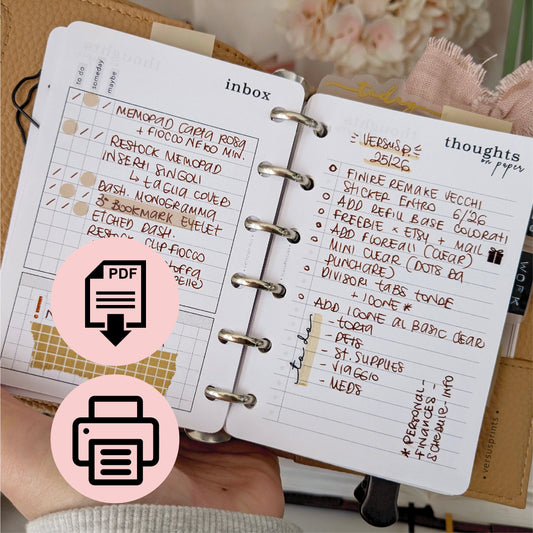 inbox
to do
someday
maybe
MEMOPAD CARTA ROSA
+ FIOCCO NERO MIN.
RESTOCK MEMOPAD
INSERTI SINGOLI
↳ TAGLIA COVER
DASH. MONOGRAMMA
BOOKMARK EYELET
ETCHED DASH.
RESTOCK CLIP FIOCCO
STOFFA
PELLE
!
PDF
today
thoughts
on paper
VERSUSP.
25/26
FINIRE REMAKE VECCHI
STICKER ENTRO 6/26
ADD REFILL BASE COLORATI
FREEBIE x ETSY + MAIL
ADD FLOREALI (CLEAR)
MINI CLEAR (DOTS DA
PUNCHARE)
DIVISORI TABS TONDE
+ ICONE *
ADD ICONE AL BASIC CLEAR
to do
- TORTA
- PETS
- ST. SUPPLIES
- VIAGGIO
- MEDS
* PERSONAL-
FINANCES-
SCHEDULE-INFO
WORK
• versusprints •